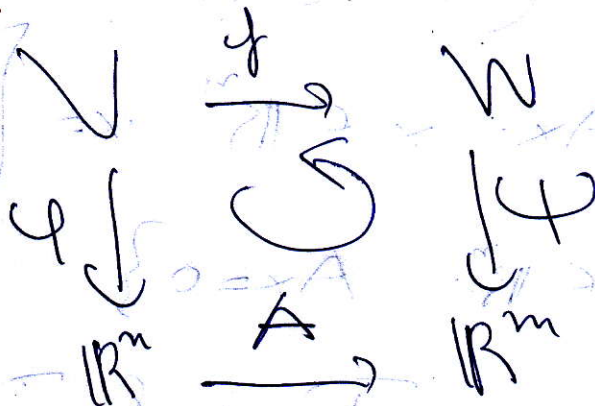 f
V W
φ ψ
ℝⁿ A ℝᵐ